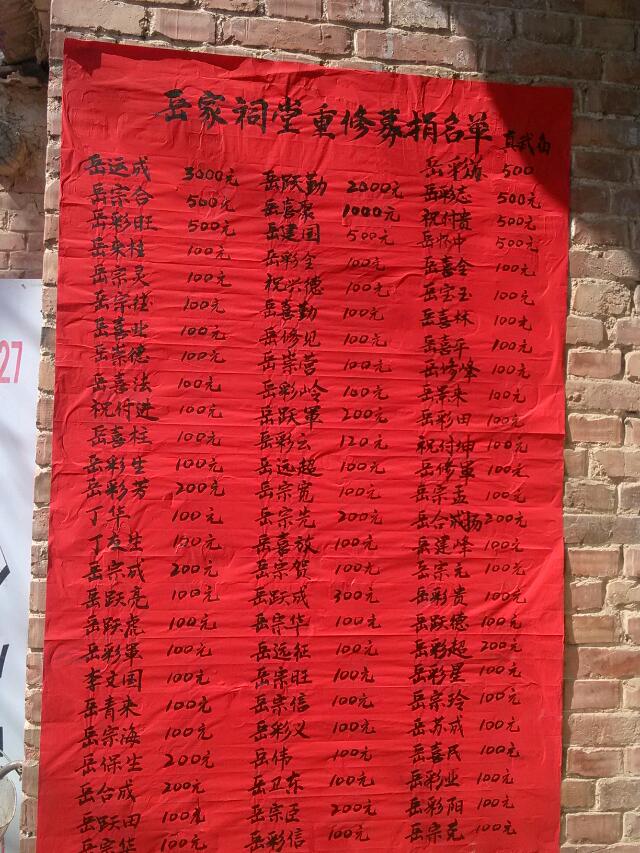 岳家祠堂重修募捐名单 真武面
岳远成 3000元
岳宗合 500元
岳彩旺 500元
岳来柱 100元
岳宗灵 100元
岳宗德 100元
岳喜业 100元
岳崇德 100元
岳喜法 100元
祝付进 100元
岳喜柱 100元
岳彩生 100元
岳彩芳 200元
丁华 100元
丁友生 100元
岳宗成 200元
岳跃亮 100元
岳跃虎 100元
岳彩軍 100元
李文国 100元
岳青来 100元
岳宗海 100元
岳保生 200元
岳合成 200元
岳跃田 100元
岳宗华 100元
岳跃勤 2000元
岳喜聚 1000元
岳建国 500元
岳彩全 100元
祝兴德 100元
岳喜勤 100元
岳修见 100元
岳崇营 100元
岳彩岭 100元
岳跃軍 200元
岳彩云 120元
岳远超 100元
岳宗宽 100元
岳宗先 200元
岳喜放 100元
岳宗贺 100元
岳跃成 300元
岳宗华 100元
岳远征 100元
岳崇旺 100元
岳宗信 100元
岳彩义 100元
岳伟 100元
岳卫东 100元
岳宗臣 200元
岳彩信 100元
岳彩 500
岳彩志 500元
祝付贵 500元
岳怀中 500元
岳喜全 100元
岳宝玉 100元
岳喜林 100元
岳喜平 100元
岳修峰 100元
岳景来 100元
岳彩田 100元
祝付坤 100元
岳修軍 100元
岳宗孟 100元
岳合成扬 200元
岳建峰 100元
岳宗元 100元
岳彩贵 100元
岳跃德 100元
岳彩超 200元
岳彩星 100元
岳宗玲 100元
岳苏成 100元
岳喜民 100元
岳彩业 100元
岳彩阳 100元
岳宗克 100元
27